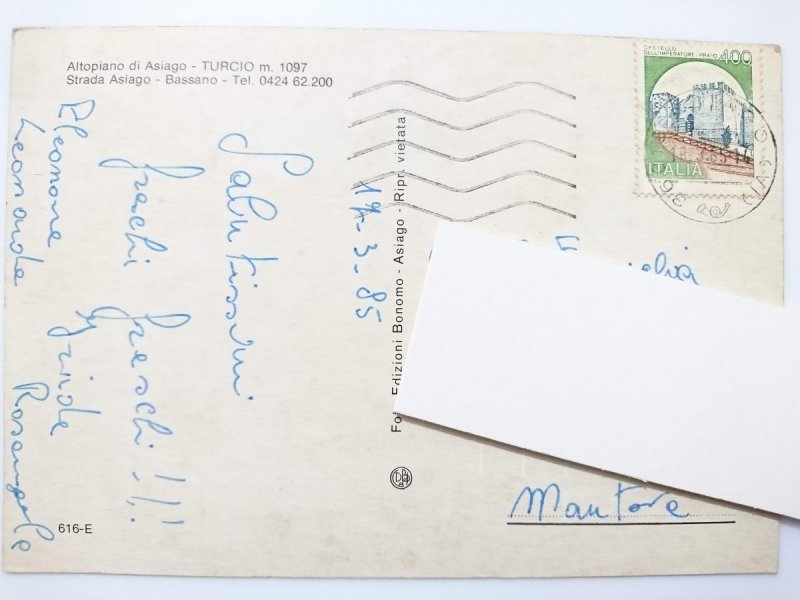 Altopiano di Asiago - TURCIO m. 1097
Strada Asiago - Bassano - Tel. 0424 62.200
Salutissimi
freschi freschi!!!
Eleonora
Leonarda
Rosangela
17-3-85
Edizioni Bonomo - Asiago - Ripr. vietata
CASTELLO
DELL'IMPERATORE-PRATO
400
ITALIA
Mantova
616-E